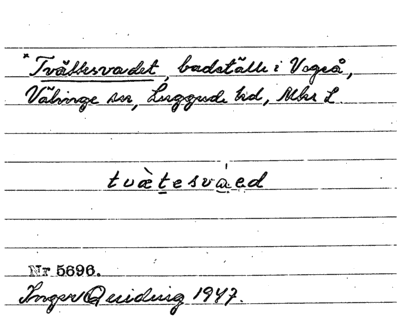 *Tvättesvadet, badställe i Vegeå,
Välinge sn, Luggude hd, Mlhs L.
tvàtesvàed
Nr 5696.
Inger Quiding 1947.